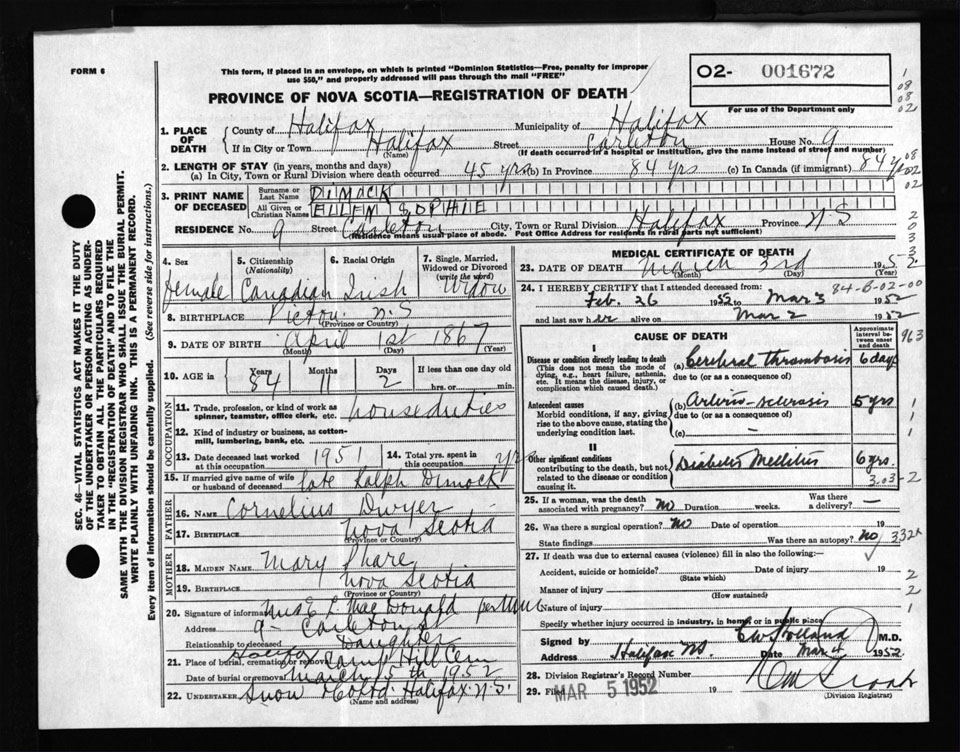 FORM 6
This form, if placed in an envelope, on which is printed "Dominion Statistics—Free, penalty for improper
use $50," and properly addressed will pass through the mail "FREE"
O2- 001672
For use of the Department only
PROVINCE OF NOVA SCOTIA—REGISTRATION OF DEATH
1. PLACE OF DEATH
County of Halifax Municipality of Halifax
If in City or Town Halifax (Name) Street Carleton House No. 9
(If death occurred in a hospital or institution, give the name instead of street and number)
2. LENGTH OF STAY (in years, months and days)
(a) In City, Town or Rural Division where death occurred 45 yrs (b) In Province 84 yrs (c) In Canada (if immigrant) 84 yrs
3. PRINT NAME OF DECEASED
Surname or Last Name DIMOCK
All Given or Christian Names ELLEN SOPHIE
RESIDENCE No. 9 Street Carleton City, Town or Rural Division Halifax Province N.S
(Residence means usual place of abode. Post Office Address for residents in rural parts not sufficient)
4. Sex female
5. Citizenship (Nationality) Canadian
6. Racial Origin Irish
7. Single, Married, Widowed or Divorced (write the word) Widow
8. BIRTHPLACE Pictou N.S
(Province or Country)
9. DATE OF BIRTH April 1st 1867
(Month) (Day) (Year)
10. AGE in Years 84 Months 11 Days 2 If less than one day
hrs. or min.
OCCUPATION
11. Trade, profession, or kind of work as spinner, teamster, office clerk, etc. houseduties
12. Kind of industry or business, as cotton-mill, lumbering, bank, etc.
13. Date deceased last worked at this occupation 1951
14. Total yrs. spent in this occupation yrs
15. If married give name of wife or husband of deceased late Ralph Dimock
FATHER
16. NAME Cornelius Dwyer
17. BIRTHPLACE Nova Scotia
(Province or Country)
MOTHER
18. MAIDEN NAME Mary Phare
19. BIRTHPLACE Nova Scotia
(Province or Country)
20. Signature of informant Mrs E L MacDonald per
Address 9 - Carleton St
Relationship to deceased Daughter
21. Place of burial, cremation or removal Halifax Camp Hill Cem
Date of burial or removal March 5th 1952
22. UNDERTAKER Snow & Co Ltd. Halifax. N.S.
(Name and address)
MEDICAL CERTIFICATE OF DEATH
23. DATE OF DEATH March 3rd 1952
(Month) (Day) (Year)
84-6-02-00
24. I HEREBY CERTIFY that I attended deceased from:
Feb. 26 1952 to Mar 3 1952
and last saw her alive on Mar 2 1952
CAUSE OF DEATH
Approximate interval between onset and death
963
I
Disease or condition directly leading to death
(This does not mean the mode of dying, e.g., heart failure, asthenia, etc. It means the disease, injury, or complication which caused death.)
(a) Cerebral thrombosis 6 days
due to (or as a consequence of)
Antecedent causes
Morbid conditions, if any, giving rise to the above cause, stating the underlying condition last.
(b) Arterio-sclerosis 5 yrs
due to (or as a consequence of)
(c) —
II
Other significant conditions contributing to the death, but not related to the disease or condition causing it.
Diabetes Mellitus 6 yrs.
3.03-2
25. If a woman, was the death associated with pregnancy? No Duration weeks. Was there a delivery? —
26. Was there a surgical operation? No Date of operation 19
State findings Was there an autopsy? No
332x
27. If death was due to external causes (violence) fill in also the following:—
Accident, suicide or homicide? Date of injury 19
(State which)
Manner of injury
(How sustained)
Nature of injury
Specify whether injury occurred in industry, in home, or in public place
Signed by C W Holland M.D.
Address Halifax NS. Date Mar 4 1952
28. Division Registrar's Record Number
29. Filed MAR 5 1952 19
(Division Registrar)
SEC. 46—VITAL STATISTICS ACT MAKES IT THE DUTY
OF THE UNDERTAKER OR PERSON ACTING AS UNDER-
TAKER TO OBTAIN ALL THE PARTICULARS REQUIRED
IN THE "REGISTRATION OF DEATH" AND TO FILE THE
SAME WITH THE DIVISION REGISTRAR WHO SHALL ISSUE THE BURIAL PERMIT.
WRITE PLAINLY WITH UNFADING INK. THIS IS A PERMANENT RECORD.
Every item of information should be carefully supplied. (See reverse side for instructions.)